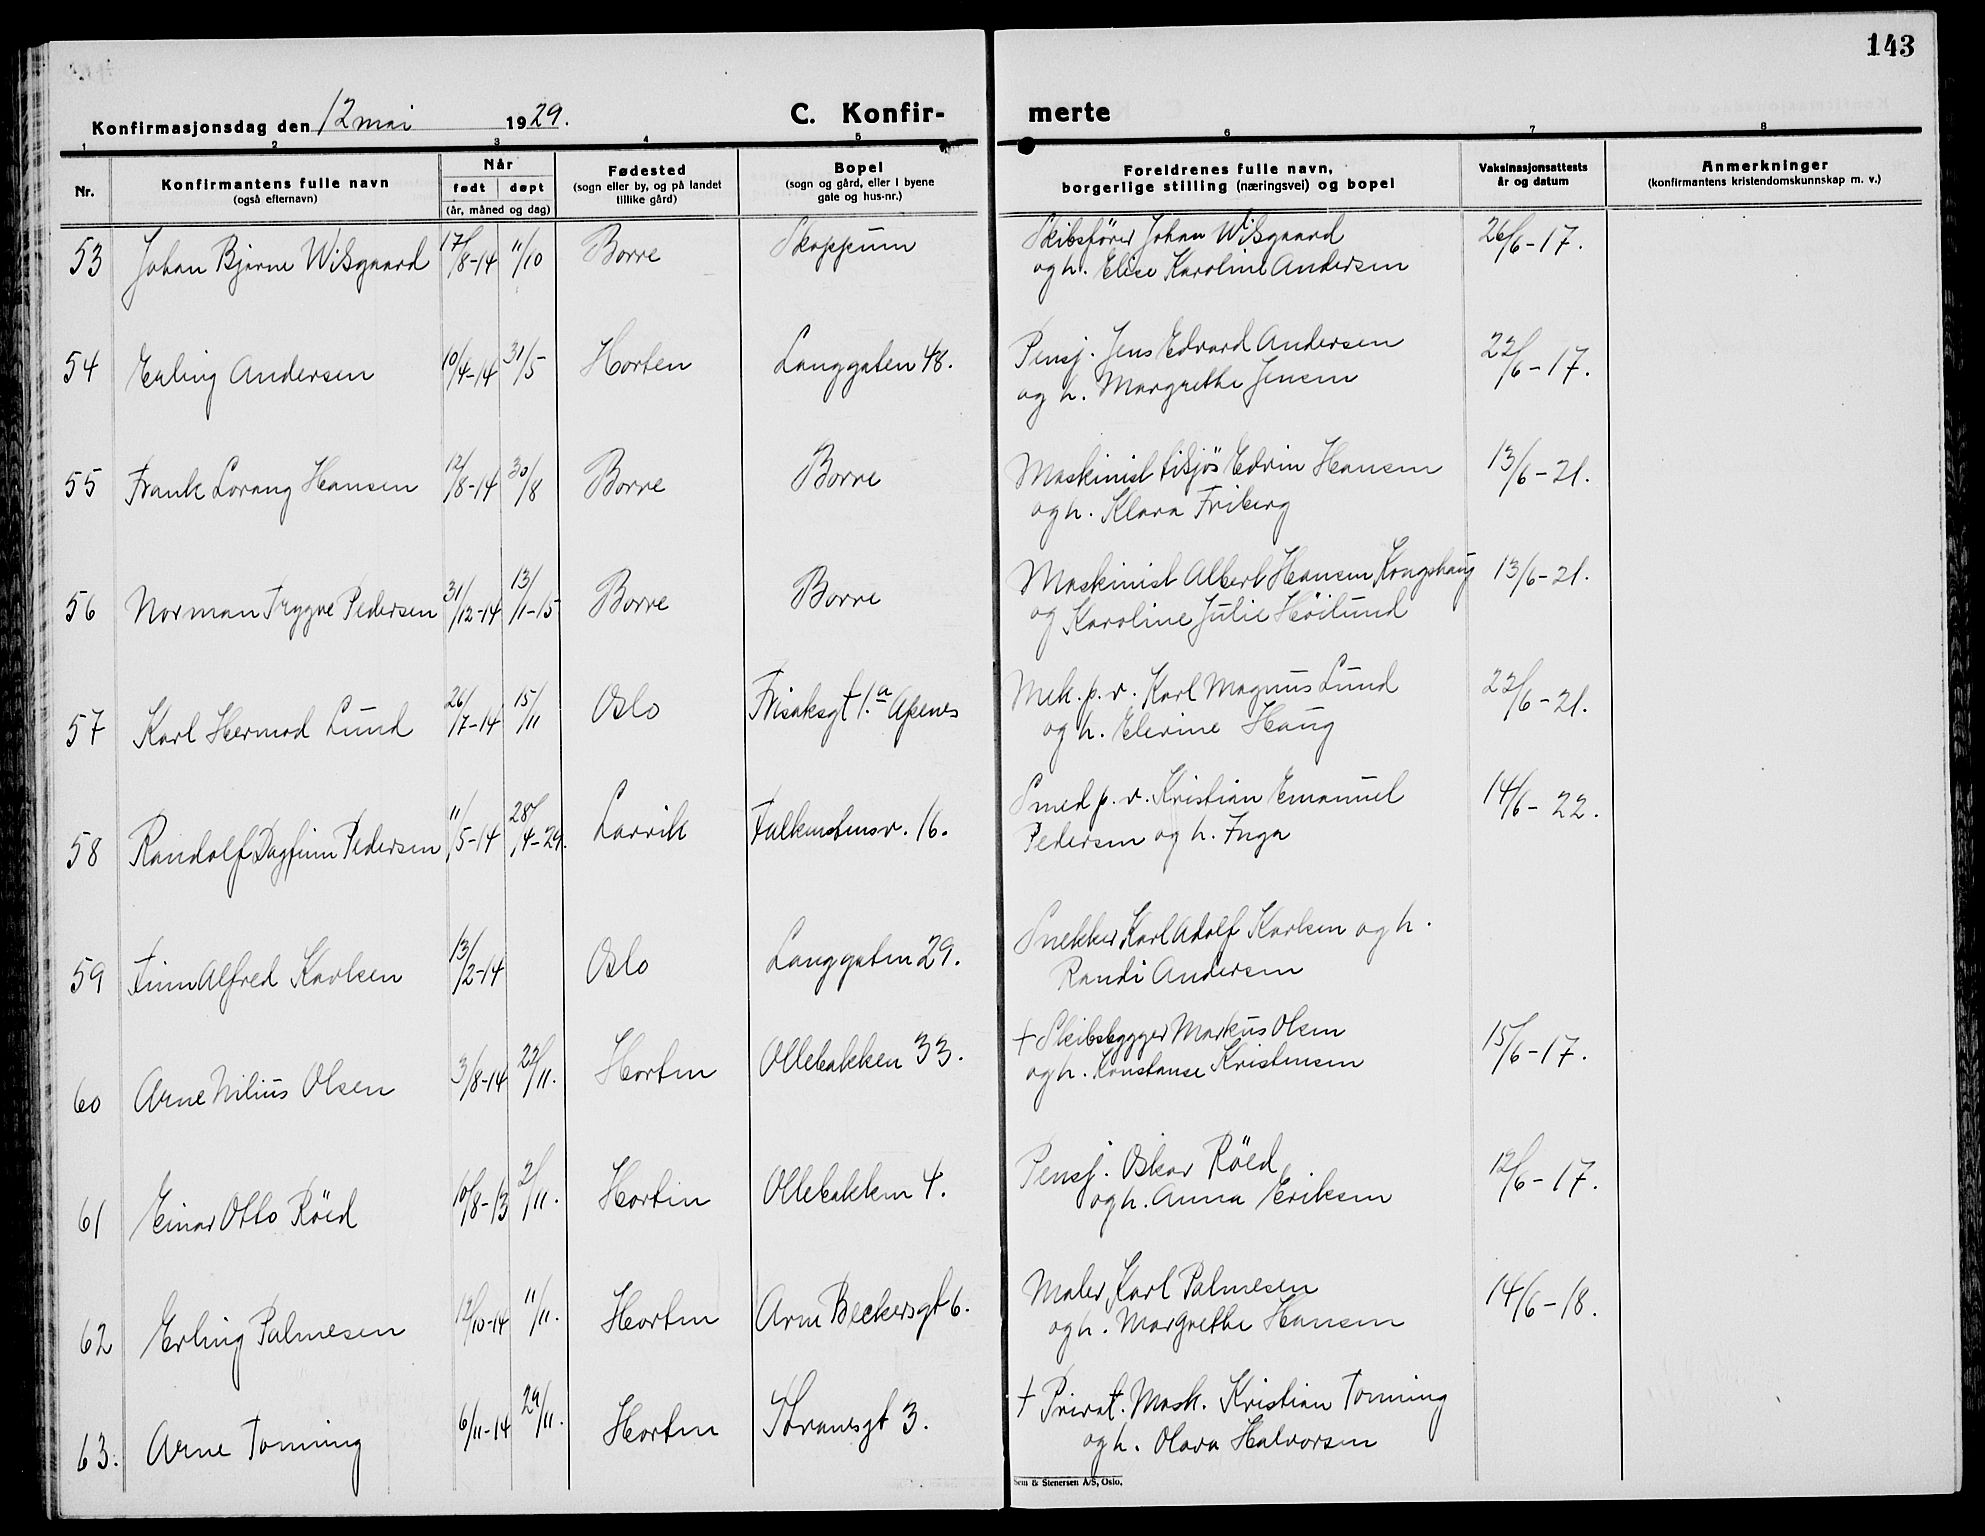 143
Konfirmasjonsdag den 12 mai 1929. C. Konfir- merte
1 2 3 4 5 6 7 8
Nr. Konfirmantens fulle navn (også efternavn) Når født døpt (år, måned og dag) Fødested (sogn eller by, og på landet tillike gård) Bopel (sogn og gård, eller i byene gate og hus-nr.) Foreldrenes fulle navn, borgerlige stilling (næringsvei) og bopel Vaksinasjonsattests år og datum Anmerkninger (konfirmantens kristendomskunnskap m. v.)
53 Johan Bjarne Wisgaard 17/8-14 11/10 Borre Skoppum Skibsfører Johan Wisgaard 26/6-17.
og h. Elise Karoline Andersen
54 Erling Andersen 10/4-14 31/5 Horten Langgaten 48. Pensj. Jens Edvard Andersen 22/6-17.
og h. Margrethe Jensen
55 Frank Lorang Hansen 12/8-14 30/8 Borre Borre Maskinist tilsjøs Edvin Hansen 13/6-21.
og h. Klara Friberg
56 Norman Trygve Pedersen 31/12-14 13/11-15 Borre Borre Maskinist Albert Hansen Kongshaug 13/6-21.
og Karoline Julie Höilund
57 Karl Hermod Lund 26/7-14 15/11 Oslo Frisaksgt 1.a Apenes Mek. p. v. Karl Magnus Lund 22/6-21.
og h. Elevine Haug
58 Randolf Dagfinn Pedersen 11/5-14 28/4-29. Larvik Falkenstensv. 16. Smed p. v. Kristian Emanuel 14/6-22.
Pedersen og h. Inga
59 Finn Alfred Karlsen 13/2-14 Oslo Langgaten 29. Snekker Karl Adolf Karlsen og h.
Randi Andersen
60 Arne Nilius Olsen 3/8-14 22/11. Horten Ollebakken 33. + Skibsbygger Markus Olsen 15/6-17.
og h. Konstanse Kristensen
61 Einar Otto Röed 10/8-13 2/11. Horten Ollebakken 4. Pensj. Oskar Röed 12/6-17.
og h. Anna Eriksen
62 Erling Palmesen 12/10-14 11/11. Horten Arne Beckersgt 6. Maler Karl Palmesen 14/6-18.
og h. Margrethe Hansen
63. Arne Tonning 6/11-14 29/11. Horten Thranesgt 3. + Privat. Mask. Kristian Tonning
og h. Olava Halvorsen
Sem & Stenersen A/S, Oslo.